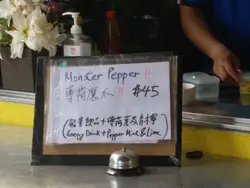 Monster Pepper !!
薄荷魔水!! #45
(能量飲品+薄荷葉及青檸)
(Energy Drink + Pepper Mint & Lime)